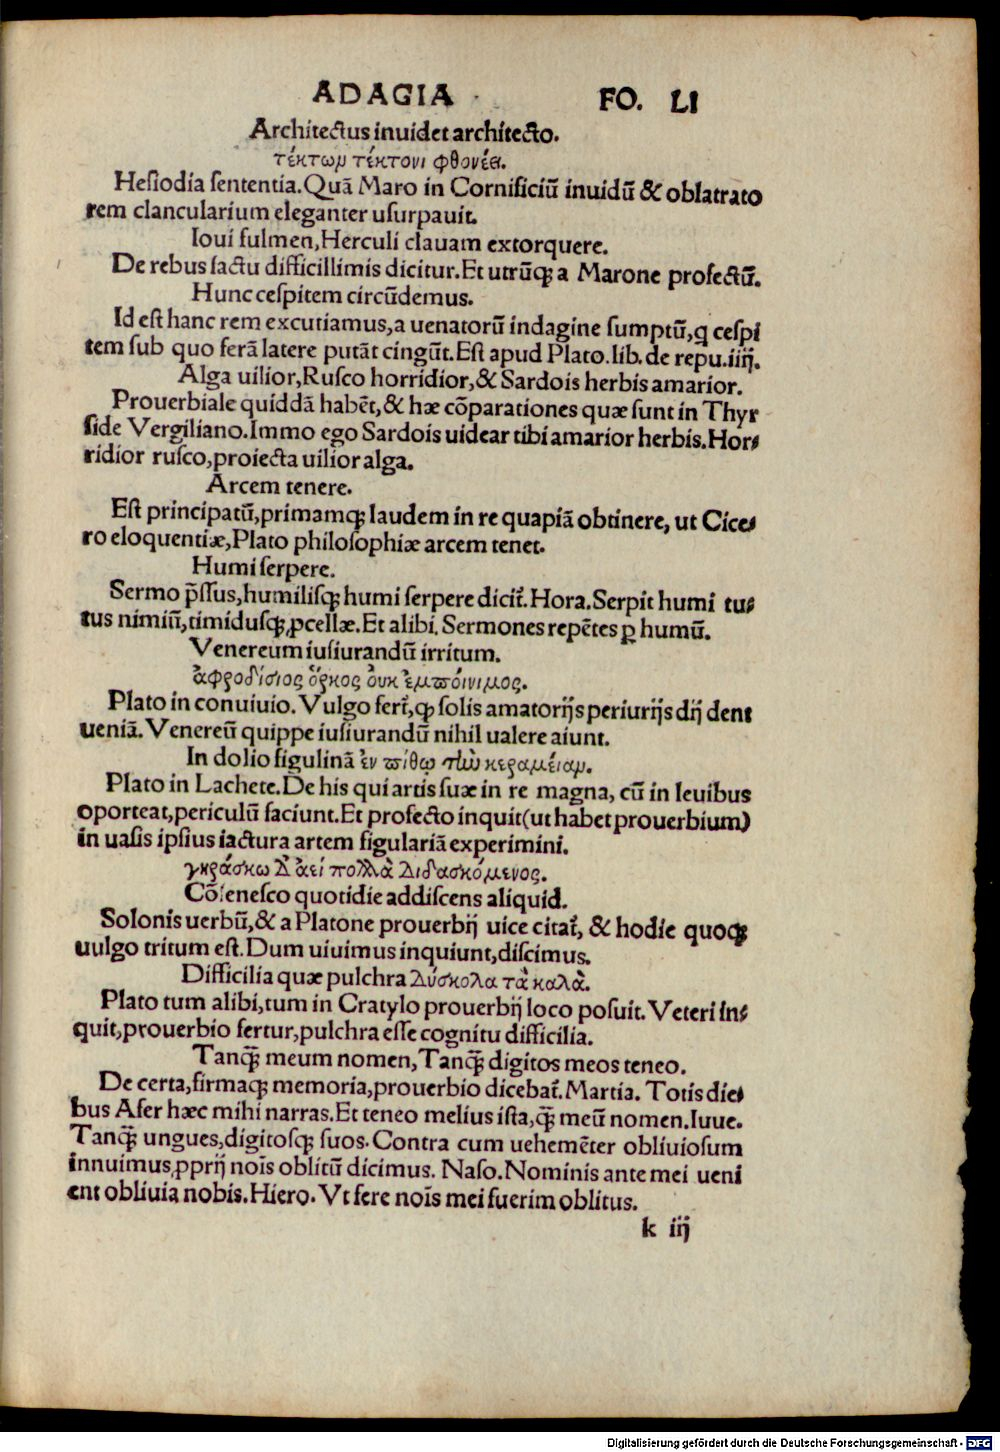 ADAGIA FO. LI
Architectus inuidet architecto.
τέκτωμ τέκτονι φθονέει.
Hesiodia sententia. Quã Maro in Cornificiũ inuidũ & oblatrato
rem clancularium eleganter usurpauit.
Ioui fulmen, Herculi clauam extorquere.
De rebus factu difficillimis dicitur. Et utrũq; a Marone profectũ.
Hunc cespitem circũdemus.
Id est hanc rem excutiamus, a uenatorũ indagine sumptũ, q cespi
tem sub quo ferã latere putãt cingũt. Est apud Plato. lib. de repu. iiij.
Alga uilior, Rusco horridior, & Sardois herbis amarior.
Prouerbiale quiddã habẽt, & hæ cõparationes quæ sunt in Thyr
side Vergiliano. Immo ego Sardois uidear tibi amarior herbis. Hor⸗
ridior rusco, proiecta uilior alga.
Arcem tenere.
Est principatũ, primamq; laudem in re quapiã obtinere, ut Cice⸗
ro eloquentiæ, Plato philosophiæ arcem tenet.
Humi serpere.
Sermo p̃ssus, humilisq; humi serpere dicit̃. Hora. Serpit humi tu⸗
tus nimiũ, timidusq; ꝓcellæ. Et alibi. Sermones repẽtes ꝑ humũ.
Venereum iusiurandũ irritum.
ἀφροδίσιος ὅρκος ὀυκ ἐμποίνιμος.
Plato in conuiuio. Vulgo fert̃, ꝙ solis amatorijs periurijs dij dent
ueniã. Venereũ quippe iusiurandũ nihil ualere aiunt.
In dolio figulinã ἐν πίθῳ τὴν κεραμείαμ.
Plato in Lachete. De his qui artis suæ in re magna, cũ in leuibus
oporteat, periculũ faciunt. Et profecto inquit (ut habet prouerbium)
in uasis ipsius iactura artem figulariã experimini.
γηράσκω δ' ἀεί πολλὰ διδασκόμενος.
Cõsenesco quotidie addiscens aliquid.
Solonis uerbũ, & a Platone prouerbij uice citat̃, & hodie quoq;
uulgo tritum est. Dum uiuimus inquiunt, discimus.
Difficilia quæ pulchra Δύσκολα τὰ καλὰ.
Plato tum alibi, tum in Cratylo prouerbij loco posuit. Veteri in⸗
quit, prouerbio fertur, pulchra esse cognitu difficilia.
Tanq̃ meum nomen, Tanq̃ digitos meos teneo.
De certa, firmaq; memoria, prouerbio dicebat̃. Martia. Totis die⸗
bus Afer hæc mihi narras. Et teneo melius ista, q̃ meũ nomen. Iuue.
Tanq̃ ungues, digitosq; suos. Contra cum uehemẽter obliuiosum
innuimus, ꝓprij nois̃ oblitũ dicimus. Naso. Nominis ante mei ueni
ent obliuia nobis. Hiero. Vt fere nois̃ mei fuerim oblitus.
k iij
Digitalisierung gefördert durch die Deutsche Forschungsgemeinschaft - DFG